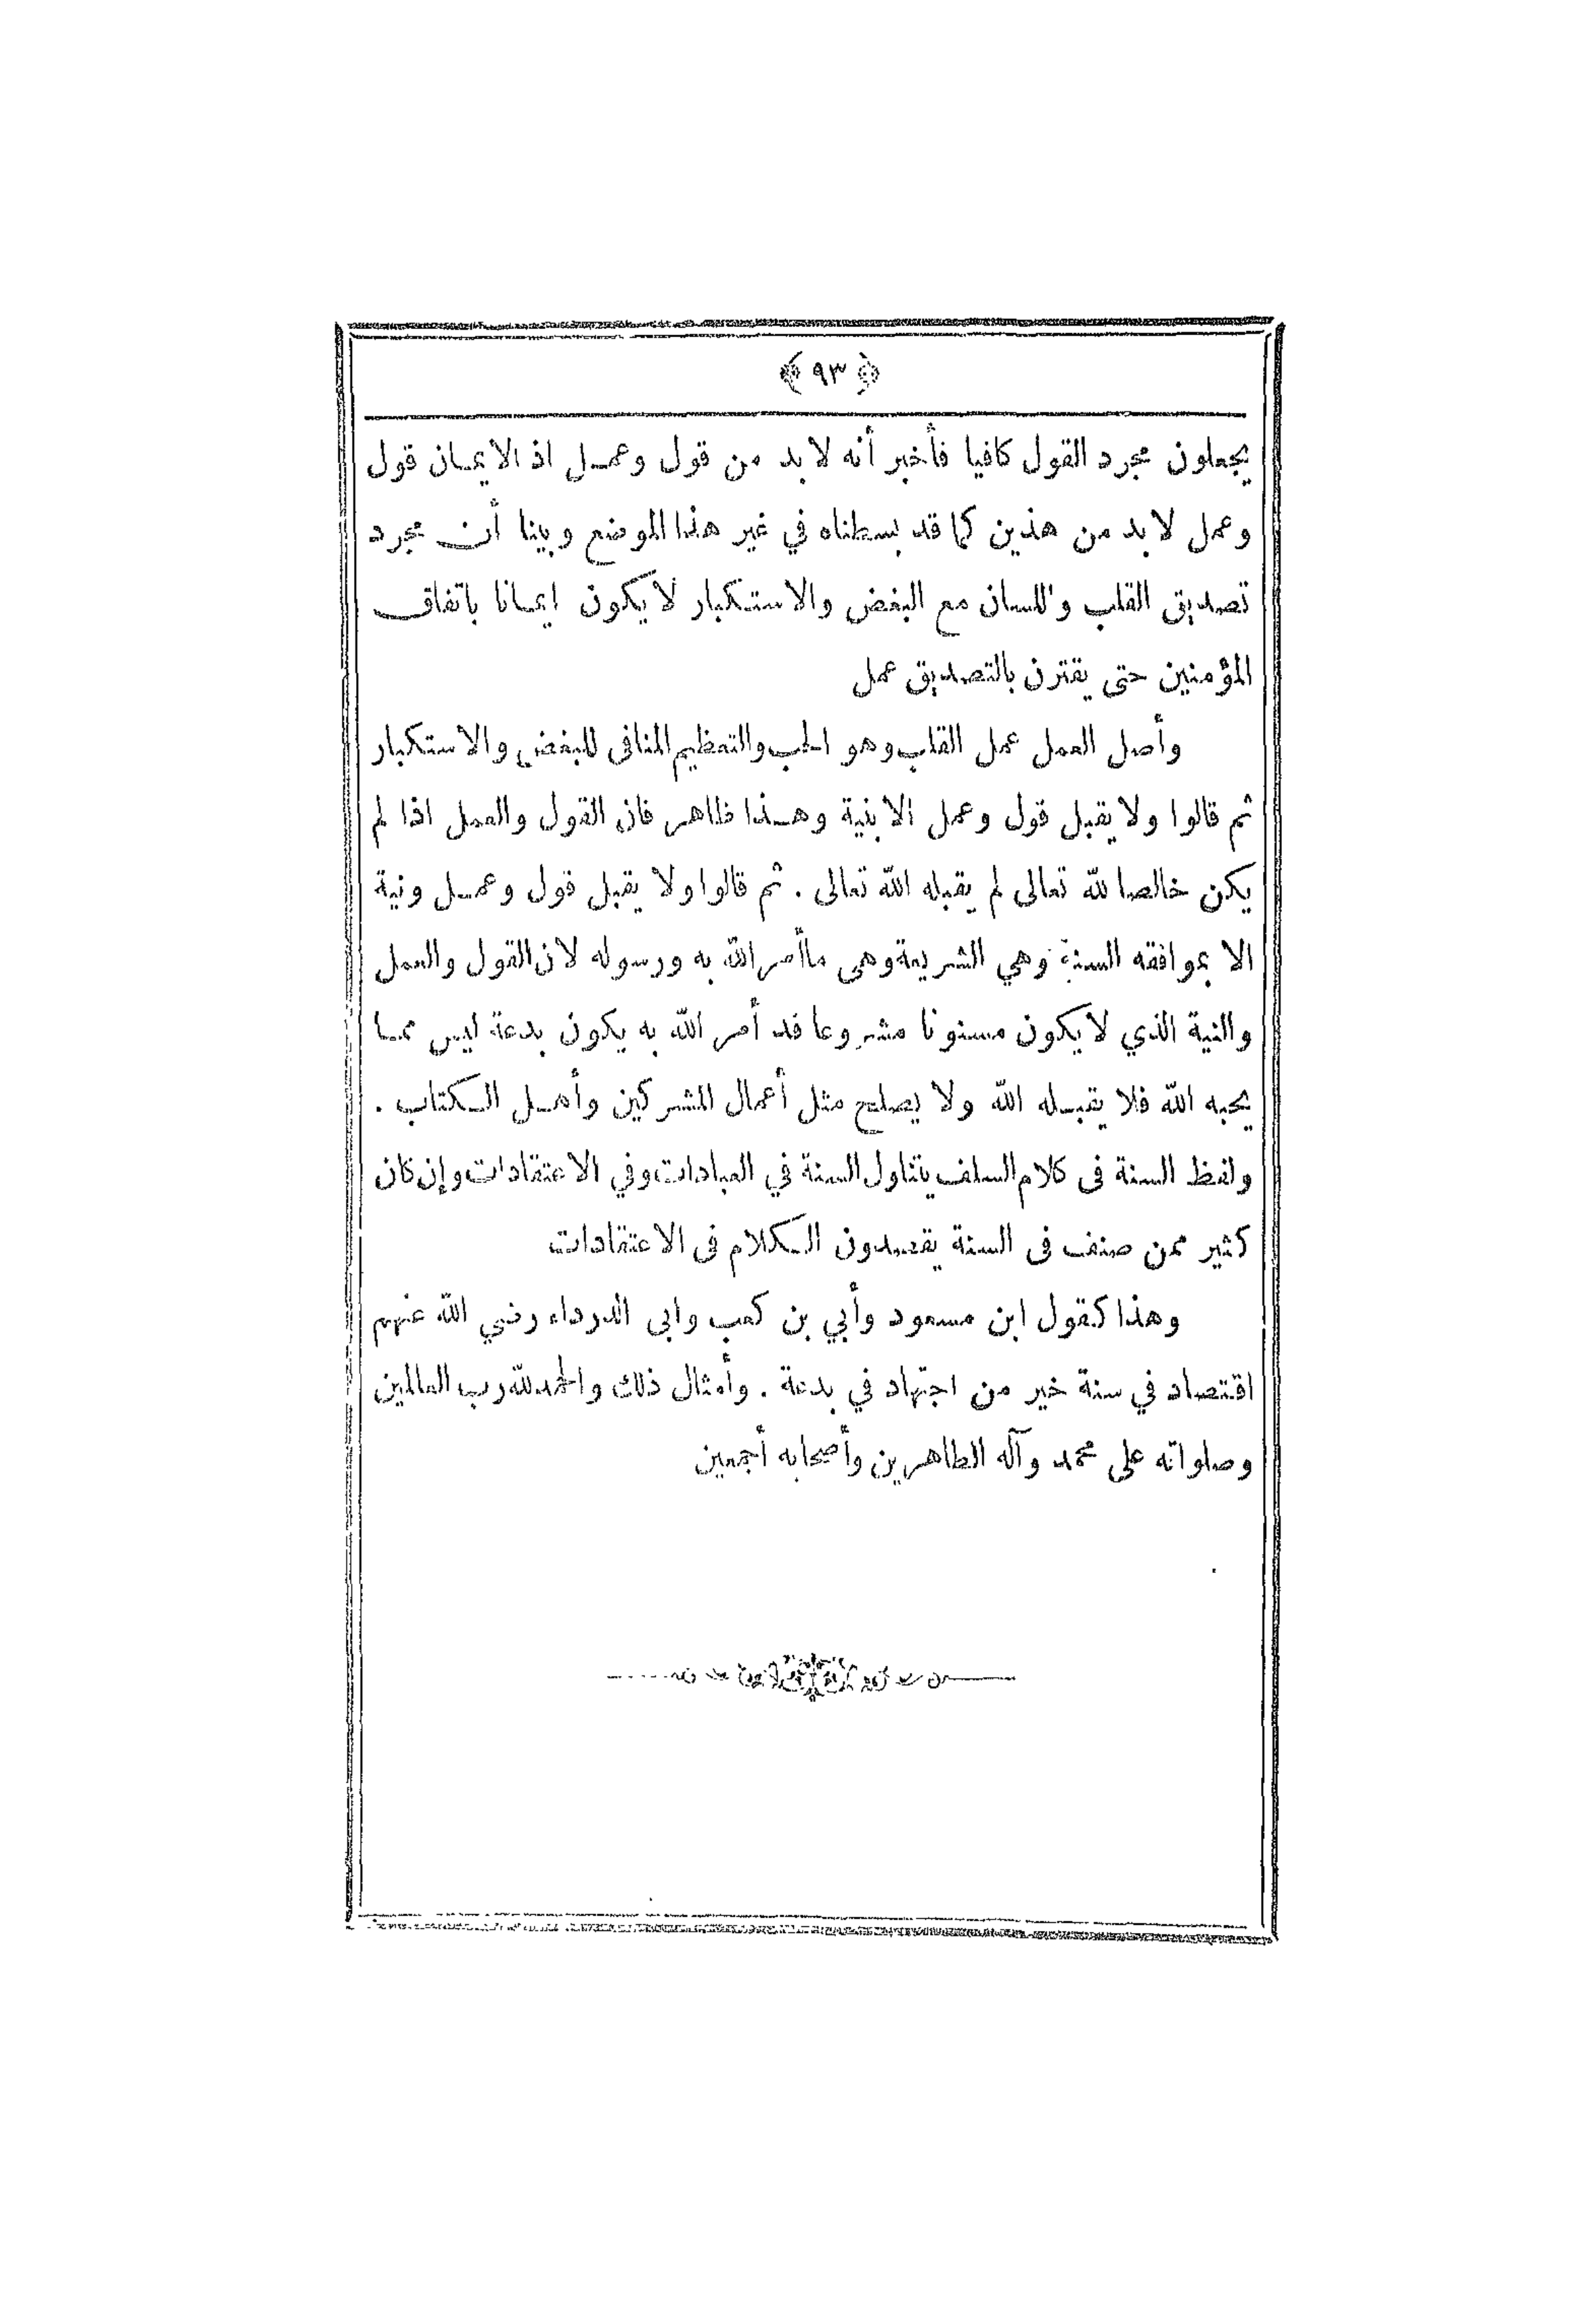 ﴿ ٩٣ ﴾
يجعلون مجرد القول كافيا فأخبر أنه لا بد من قول وعمل اذ الايمان قول
وعمل لا بد من هذين كما قد بسطناه في غير هذا الموضع وبينا أن مجرد
تصديق القلب واللسان مع البغض والاستكبار لا يكون ايمانا باتفاق
المؤمنين حتى يقترن بالتصديق عمل
وأصل العمل عمل القلب وهو الحب والتعظيم المنافى للبغض والاستكبار
ثم قالوا ولا يقبل قول وعمل الا بنية وهذا ظاهر فان القول والعمل اذا لم
يكن خالصا لله تعالى لم يقبله الله تعالى . ثم قالوا ولا يقبل قول وعمل ونية
الا بموافقه السنة وهي الشريعة وهى ما أمر الله به ورسوله لان القول والعمل
والنية الذي لا يكون مسنونا مشروعا قد أمر الله به يكون بدعة ليس مما
يحبه الله فلا يقبله الله ولا يصلح مثل أعمال المشركين وأهل الكتاب .
ولفظ السنة فى كلام السلف يتناول السنة في العبادات وفي الاعتقادات وإن كان
كثير ممن صنف فى السنة يقصدون الكلام فى الاعتقادات
وهذا كقول ابن مسعود وأبي بن كعب وابى الدرداء رضي الله عنهم
اقتصاد في سنة خير من اجتهاد في بدعة . وأمثال ذلك والحمد لله رب العالمين
وصلواته على محمد وآله الطاهرين وأصحابه أجمعين